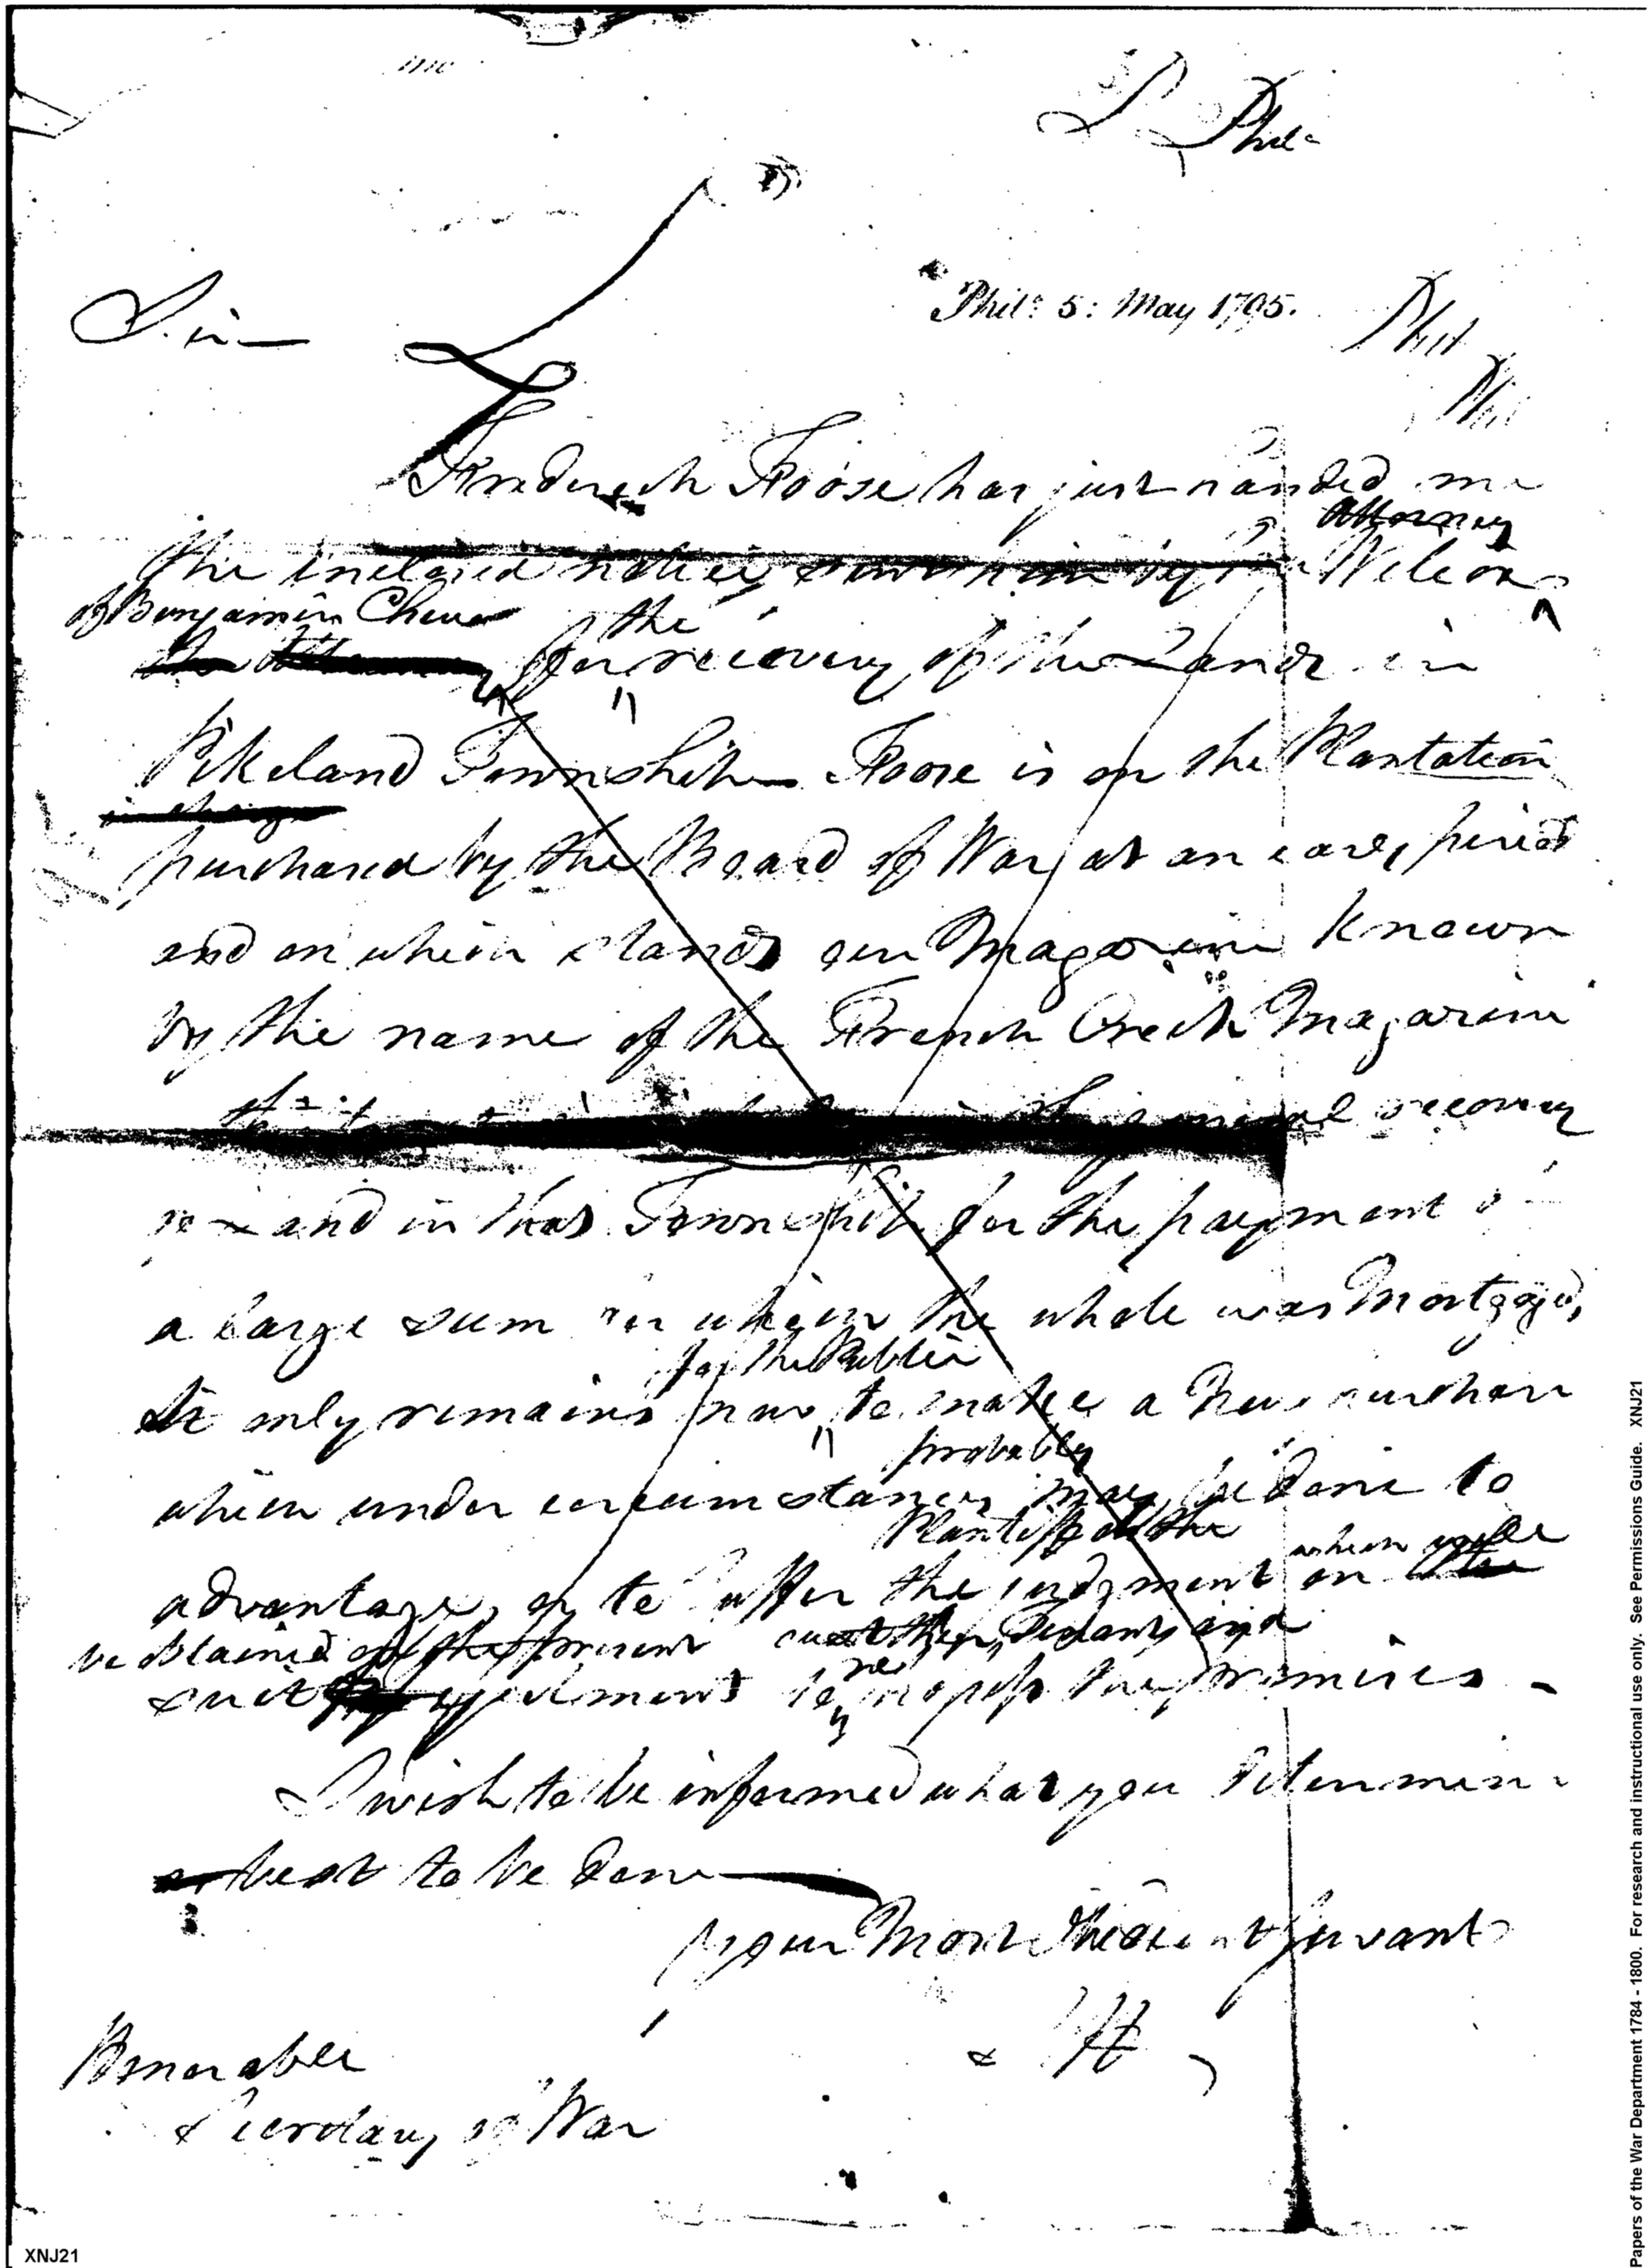 Phil-
Phila. 5: May 1795.
Phil
Phil
Sir
Frederick Foose has just handed me
Attorney
the inclosed notice by Wilcox
of Benjamin Chew the
for recovery of the Lands in
Pikeland Township Foose is on the Plantation
purchased by the Board of War at an early period
and on which stands our Magazine known
by the name of the French Creek Magazine
general recovery
land in that Township for the payment of
a large sum for which the whole was Mortgaged,
for the Public
It only remains now to make a New purchase
probably
which under circumstances may be done to
Plantiff all the which will
advantage, or to suffer the judgment on the
be obtained of the present
suit ejectment to repossess the premises -
I wish to be informed what you determine
best to be done
Your Most Obedient Servant
Honorable
Secretary of War
XNJ21
Papers of the War Department 1784 - 1800. For research and instructional use only. See Permissions Guide. XNJ21